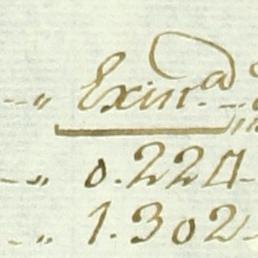 --" Exin.ᵃᵈ
--" 0.224-
-" 1.302-